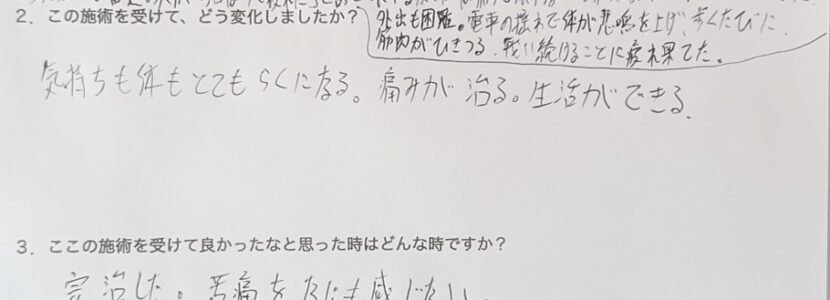 2. この施術を受けて、どう変化しましたか？
外出も困難。電車の揺れで体が悲鳴を上げ、歩くたびに
筋肉がひきつる。戦い続けることに疲れ果てた。
気持ちも体もとてもらくになる。痛みが治る。生活ができる.
3. ここの施術を受けて良かったなと思った時はどんな時ですか？
完治した。苦痛を